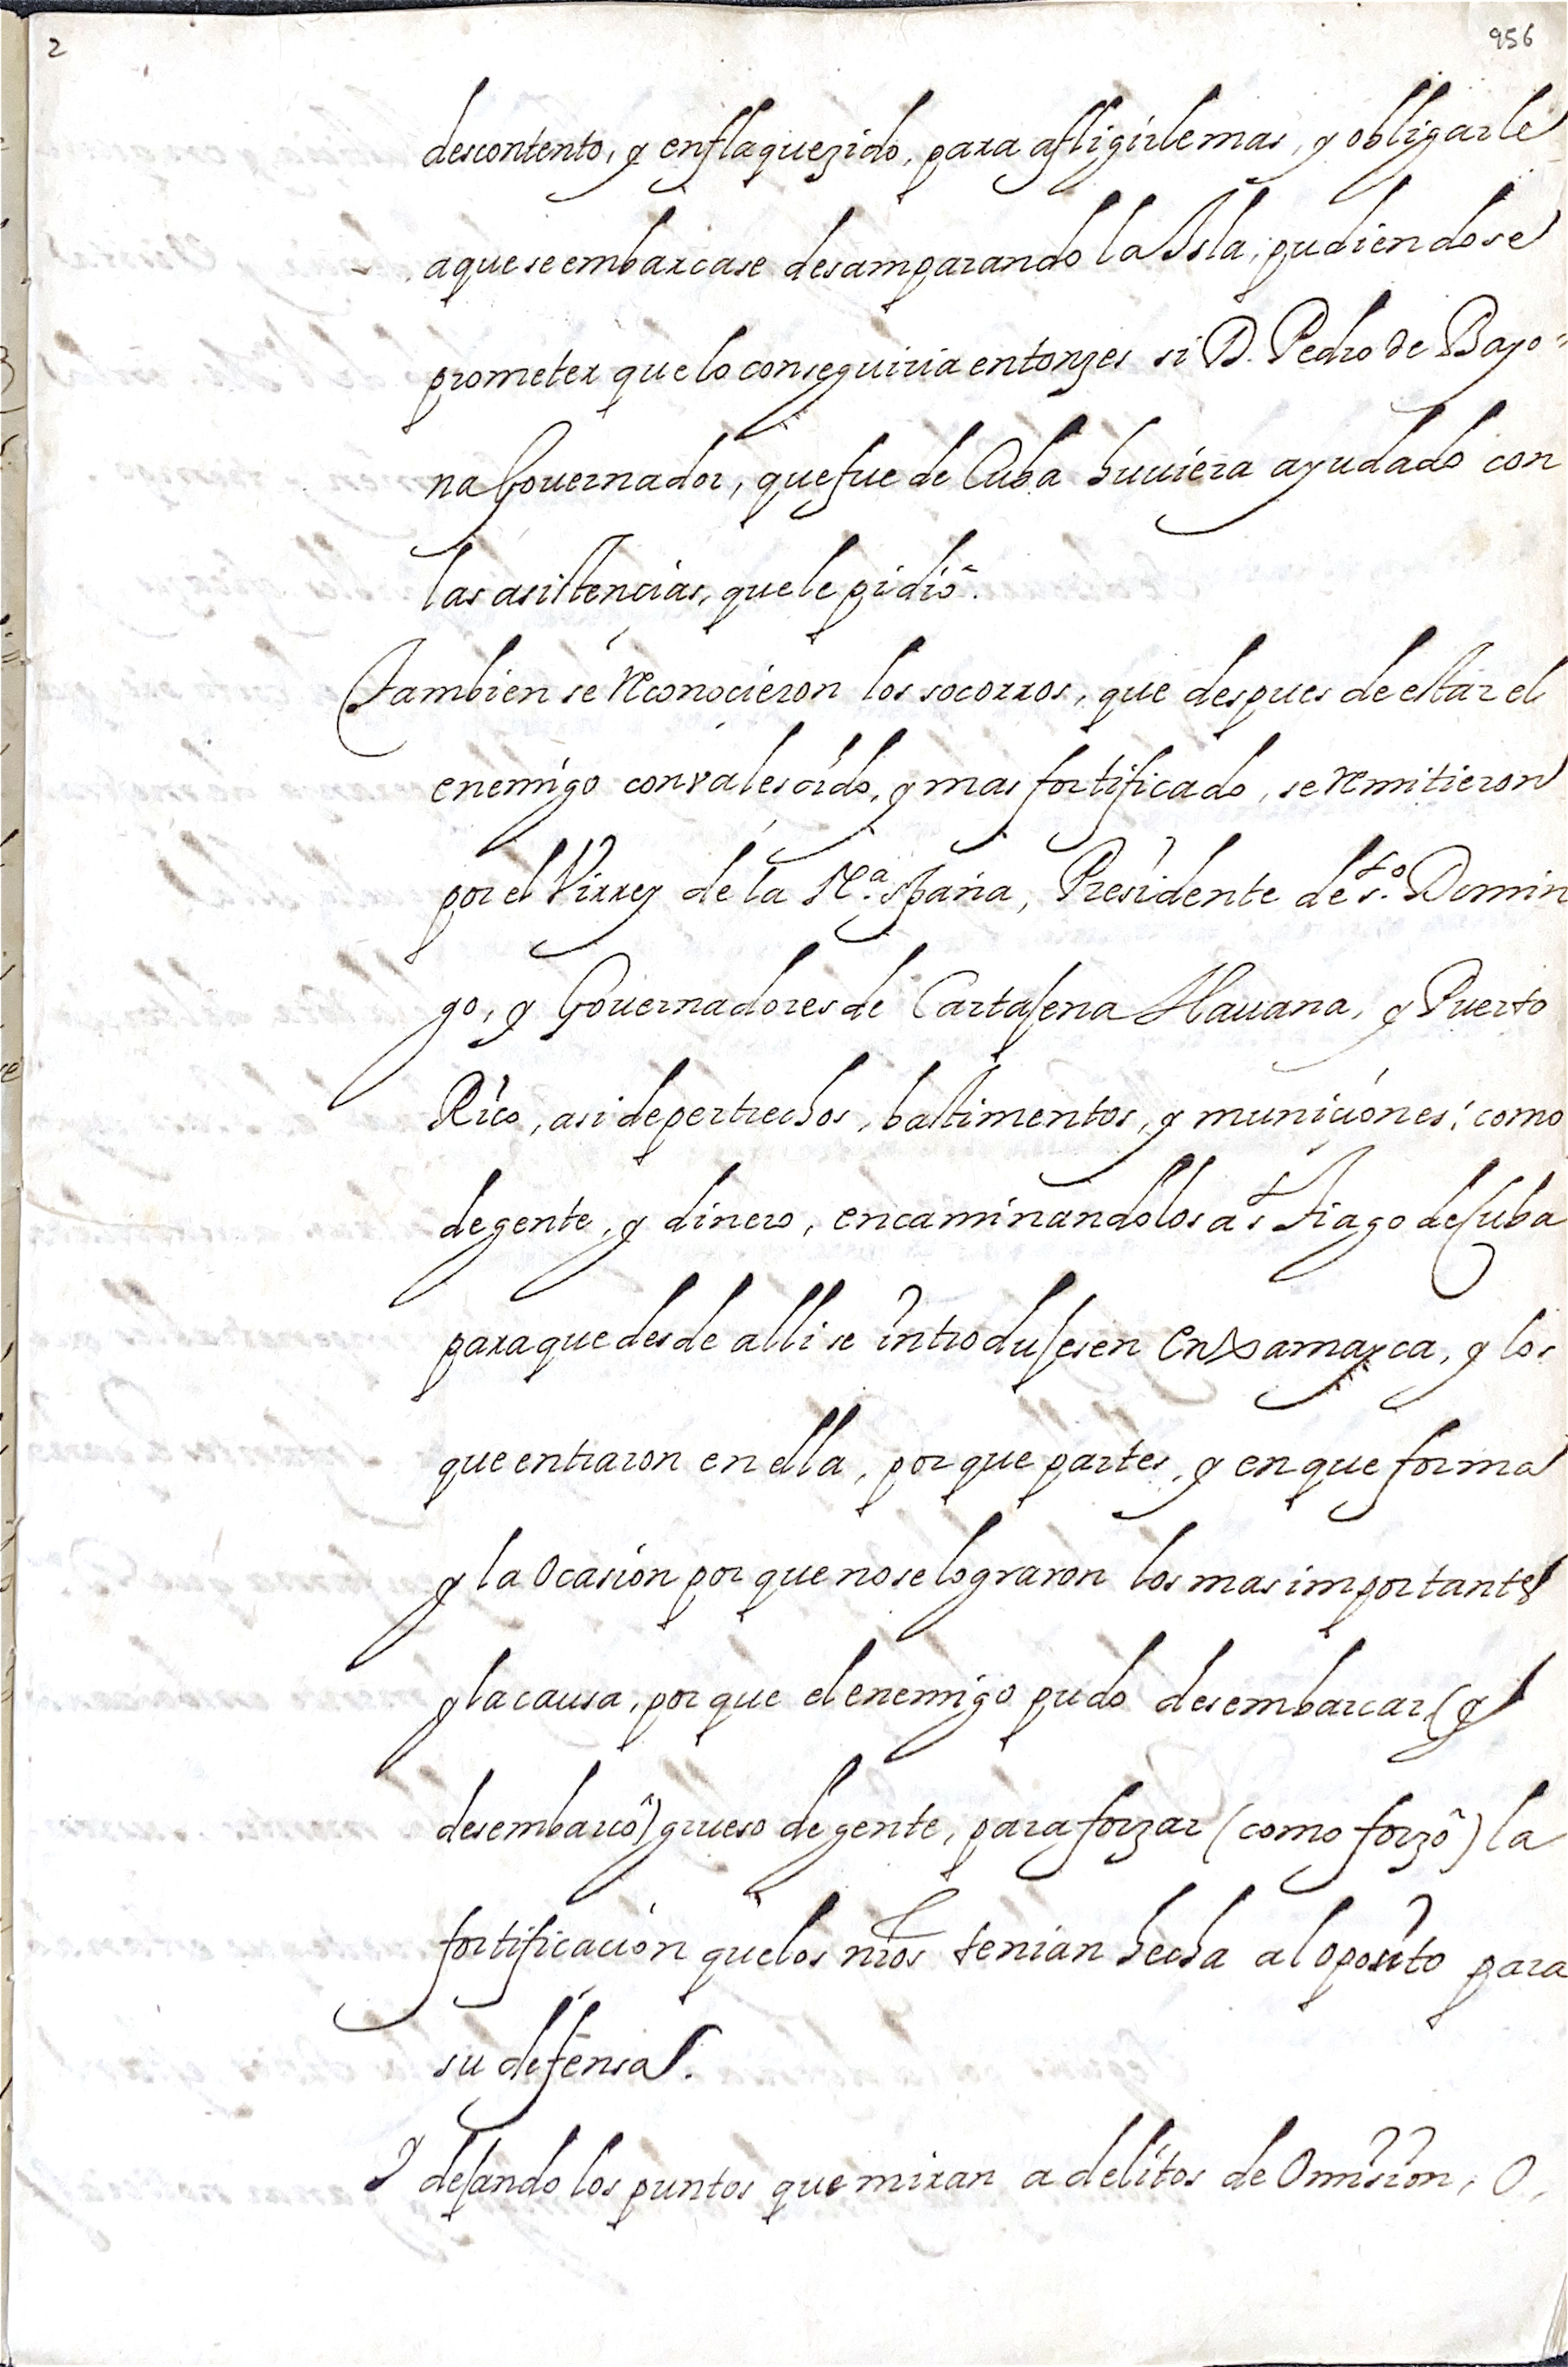 2
956
descontento, y enflaquezido, para afligirle mas, y obligarle
a que se embarcase desamparando la Isla, pudiendose
prometer que lo conseguiria entonzes si D. Pedro de Bayo=
na Governador, que fue de Cuba huuiera ayudado con
las asistencias, que le pidió.
Tambien se reconocieron los socorros, que despues de estar el
enemigo convalescido, y mas fortificado, se remitieron
por el Virrey de la Na. españa, Presidente de sto. Domin
go, y Gouernadores de Cartajena Hauana, y Puerto
Rico, asi de pertrechos, bastimentos, y municiónes; como
de gente, y dinero, encaminandolos a st Tiago de Cuba
para que desde alli se introdujesen en Xamayca, y los
que entraron en ella, por que partes, y en que forma
y la ocasión por que no se lograron los mas importantes
y la causa, por que el enemigo pudo desembarcar, (y
desembarcô) grueso de gente, para forzar (como forzô) la
fortificación que los nros tenian hecha al oposito para
su defensa.
Y dejando los puntos que miran a delitos de Omision, O,